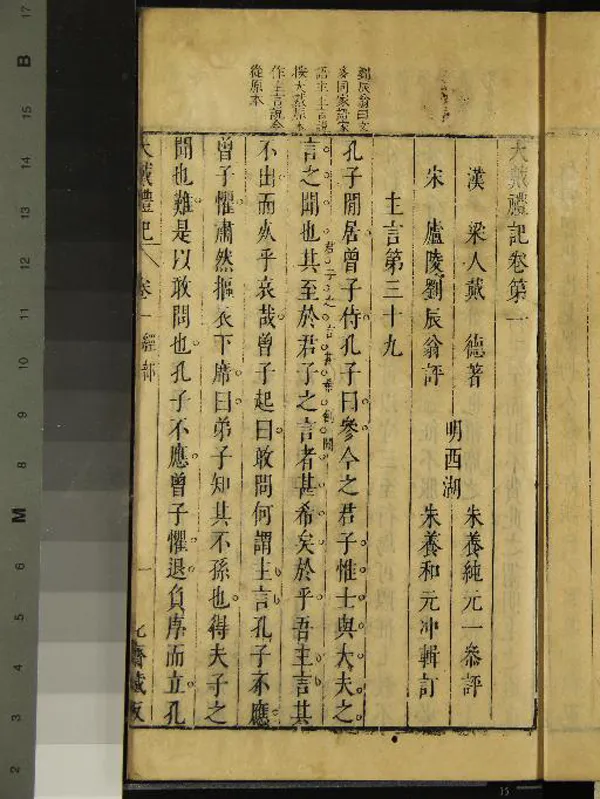 大戴禮記卷第一
漢 梁人戴 德著
宋 廬陵劉辰翁評
明西湖
朱養純元一參評
朱養和元冲輯訂
主言第三十九
孔子閒居曾子侍孔子曰參今之君子惟士與大夫之
言之聞也其至於君子之言者甚希矣於乎吾主言其
君子之言甚希
不出而死乎哀哉曾子起曰敢問何謂主言孔子不應
曾子懼肅然摳衣下席曰弟子知其不孫也得夫子之
閒也難是以敢問也孔子不應曾子懼退負序而立孔
劉辰翁曰文
多同家語家
語主主言說
按大戴原本
作主言說今
從原本
大戴禮記 卷一 經部
一
藏板